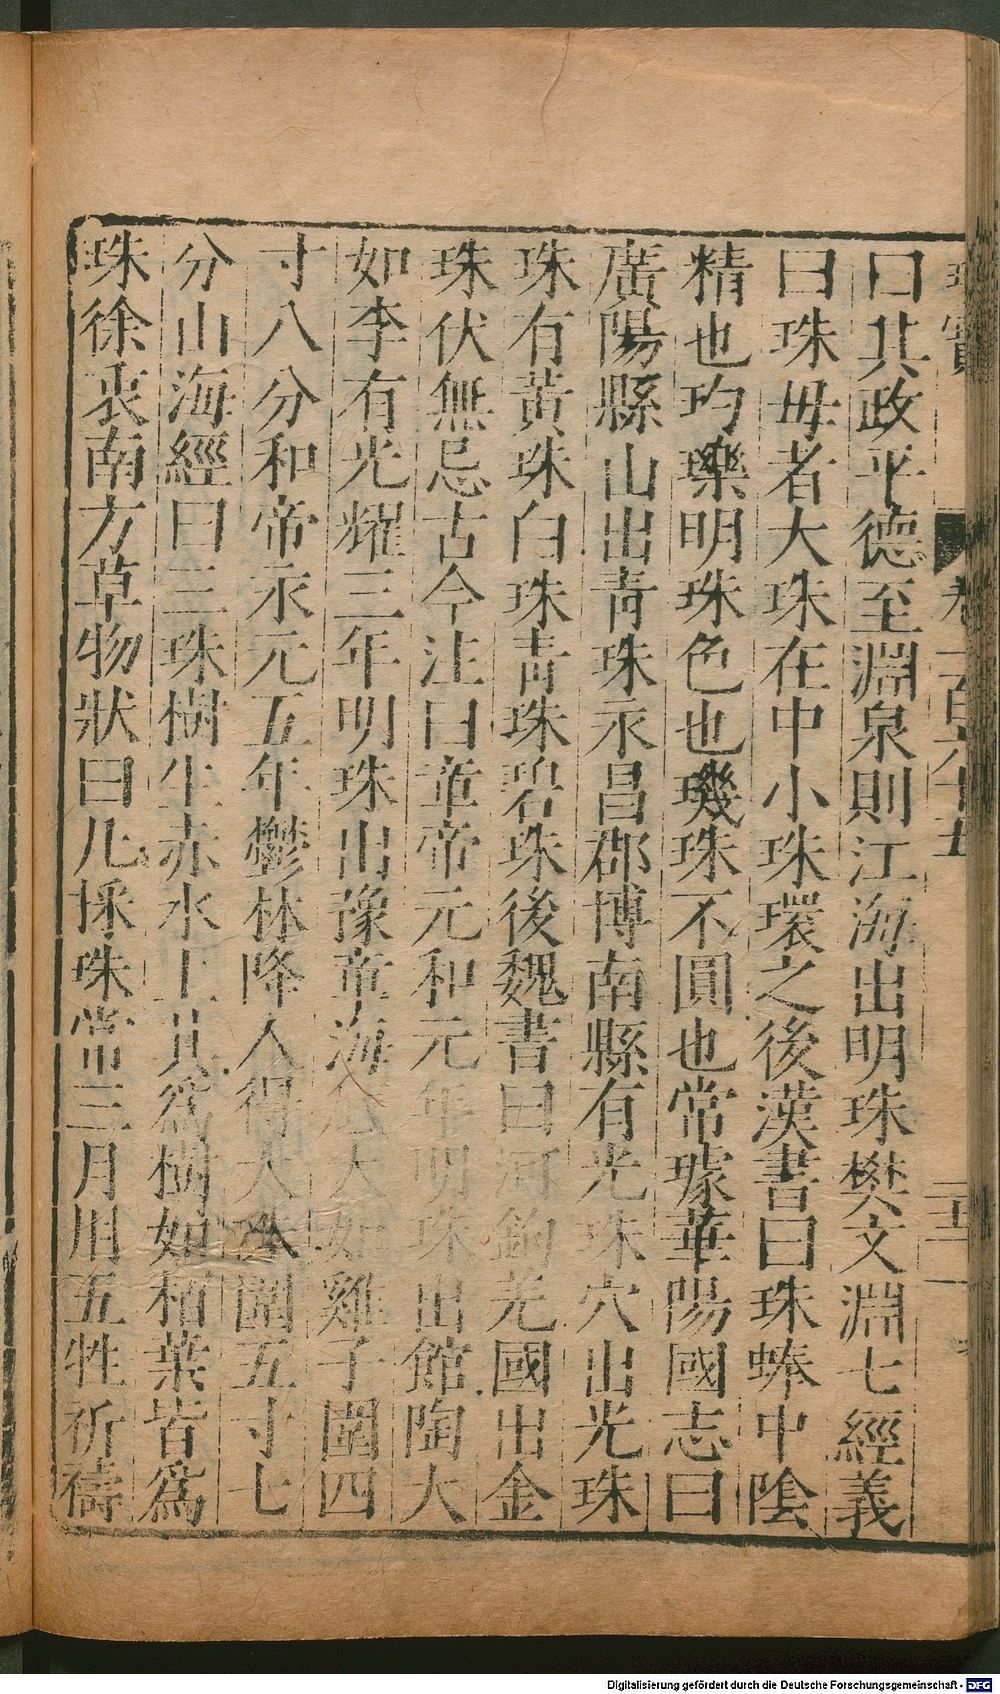 曰其政平德至淵泉則江海出明珠樊文淵七經義
曰珠母者大珠在中小珠環之後漢書曰珠蜯中陰
精也玓瓅明珠色也璣珠不圓也常璩華陽國志曰
廣陽縣山出青珠永昌郡博南縣有光珠穴出光珠
珠有黃珠白珠青珠碧珠後魏書曰河鉤羌國出金
珠伏無忌古今注曰章帝元和元年明珠出館陶大
如李有光耀三年明珠出豫章海大如雞子圍四
寸八分和帝永元五年鬱林降人得大珠圍五寸七
分山海經曰三珠樹生赤水上其爲樹如栢葉皆爲
珠徐衷南方草物狀曰凡採珠常三月用五牲祈禱
寶
卷一百六十五
Digitalisierung gefördert durch die Deutsche Forschungsgemeinschaft - DFG